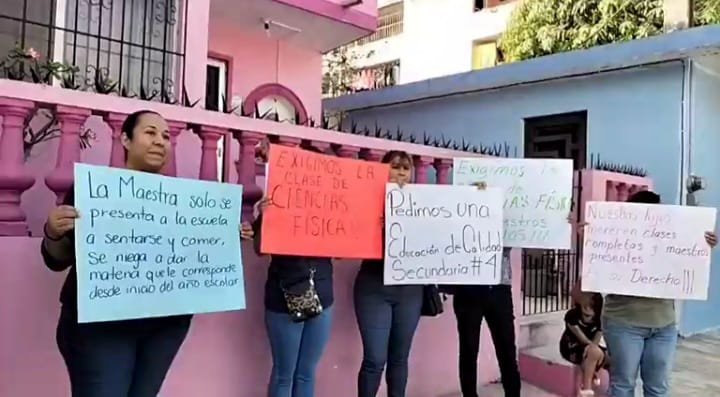 La Maestra solo se
presenta a la escuela
a sentarse y comer.
Se niega a dar la
materia que le corresponde
desde inicio del año escolar
EXIGIMOS LA
CLASE DE
CIENCIAS
FISICA!!
Pedimos una
Educación de Calidad
Secundaria #4
Exigimos
de
FÍSICA!
Nuestros hijos
merecen clases
completas y maestros
presentes
Es su Derecho!!!